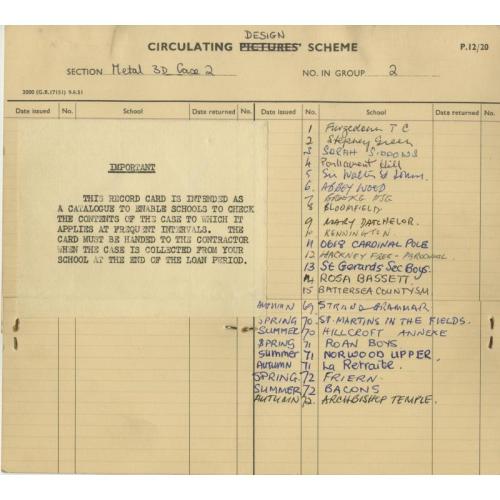 DESIGN
CIRCULATING PICTURES' SCHEME P.12/20
SECTION Metal 3D Case 2 NO. IN GROUP 2
2000 (G.R.17151) 9.4.51
Date issued No. School Date returned No. Date issued No. School Date returned No.
IMPORTANT
THIS RECORD CARD IS INTENDED AS
A CATALOGUE TO ENABLE SCHOOLS TO CHECK
THE CONTENTS OF THE CASE TO WHICH IT
APPLIES AT FREQUENT INTERVALS. THE
CARD MUST BE HANDED TO THE CONTRACTOR
WHEN THE CASE IS COLLECTED FROM YOUR
SCHOOL AT THE END OF THE LOAN PERIOD.
1 Furzedown T C
2 Stepney Green
3 SARAH SIDDONS
4 Parliament Hill
5 Sir Walter St Johns.
6. ABBEY WOOD
7 BROOKE HSE
8 BLOOMFIELD
9 MARY DATCHELOR.
10 KENNINGTON.
11 0618 CARDINAL POLE
12 HACKNEY FREE - PAROCHIAL
13 St Gerards Sec Boys.
14 ROSA BASSETT.
15 BATTERSEA COUNTY SM.
AUTUMN 69. STRAND GRAMMAR
SPRING 70. ST. MARTINS IN THE FIELDS.
SUMMER 70 HILLCROFT ANNEXE
SPRING 71 ROAN BOYS
Summer 71 NORWOOD UPPER.
AUTUMN 71 La Retraite.
SPRING 72 FRIERN.
SUMMER 72 BACONS
AUTUMN 72. ARCHBISHOP TEMPLE.